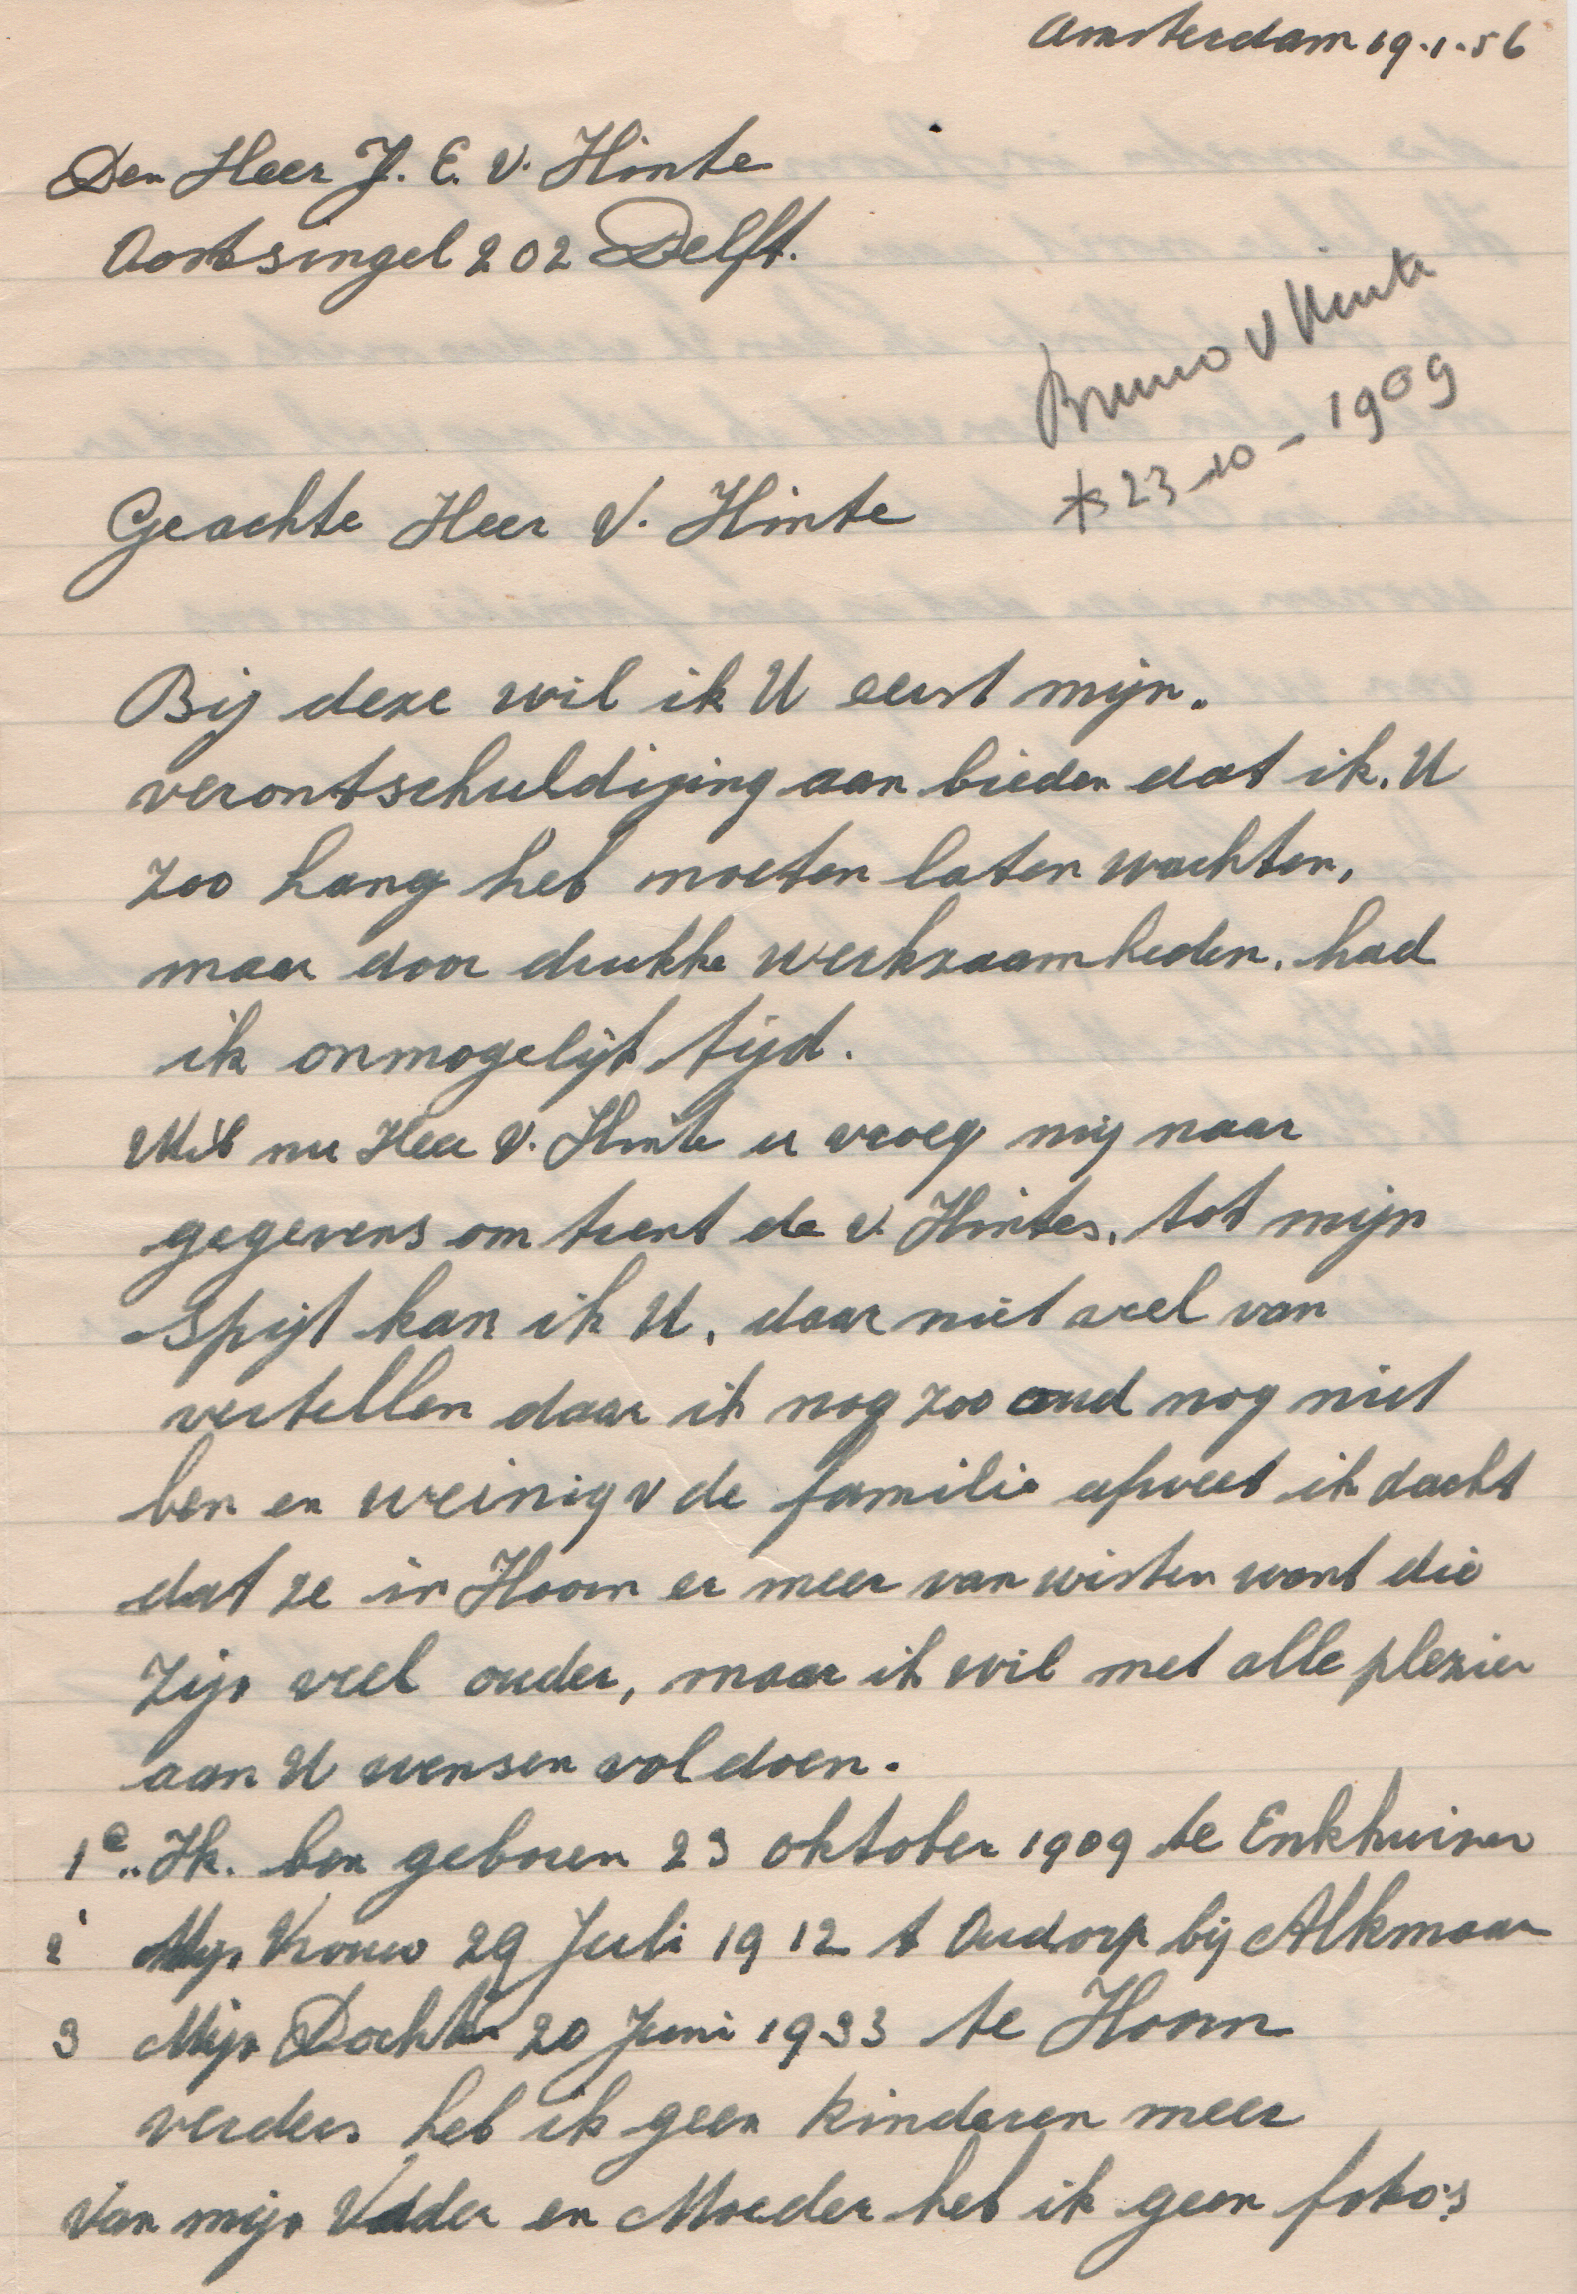 Amsterdam 19.1.56
Den Heer J. E. V. Hinte
Oostsingel 202 Delft.
Bruno v Hinte
* 23-10-1909
Geachte Heer V. Hinte
Bij deze wil ik U eerst mijn.
verontschuldiging aan bieden dat ik. U
zoo lang heb moeten laten wachten,
maar door drukke werkzaamheden. had
ik onmogelijk tijd.
nu Heer V. Hinte u vroeg mij naar
gegevens om trent de v. Hintes, tot mijn
spijt kan ik U, daar niet veel van
vertellen daar ik nog zoo oud nog niet
ben en weinig v de familie afweet ik dacht
dat ze in Hoorn er meer van wisten want die
zijn veel ouder, maar ik wil met alle plezier
aan U wensen vol doen.
1e.. Ik. ben geboren 23 oktober 1909 te Enkhuizen
2 Mijn Vrouw 29 Juli 1912 t Oudorp bij Alkmaar
3 Mijn Dochter 20 Juni 1933 te Hoorn
verders heb ik geen kinderen meer
Van mijn Vader en Moeder heb ik geen foto's